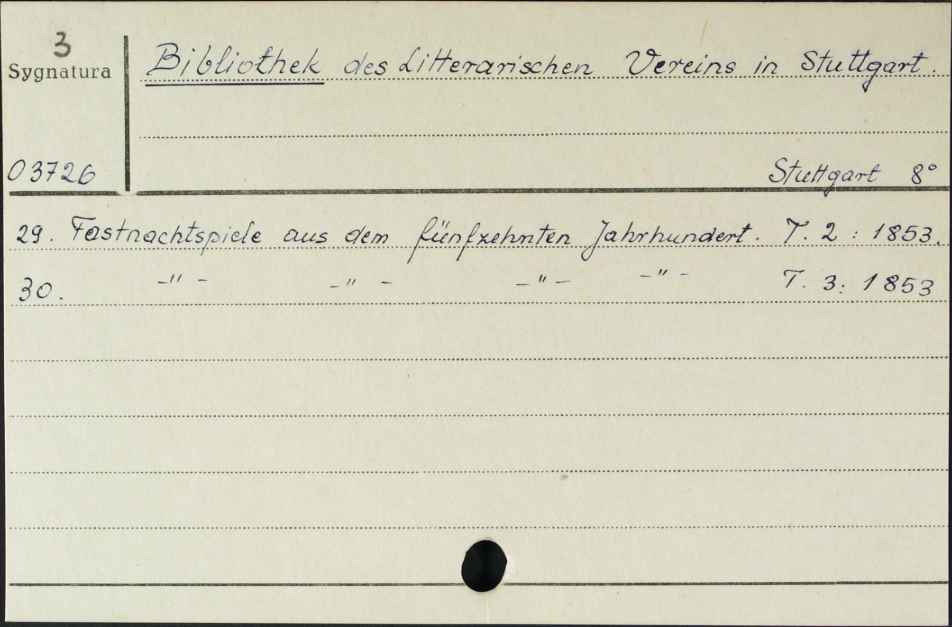 3
Sygnatura
Bibliothek des Litterarischen Vereins in Stuttgart.
03726
Stuttgart 8°
29. Fastnachtspiele aus dem fünfzehnten Jahrhundert. T. 2 : 1853.
30. -"- -"- -"- -"- T. 3: 1853